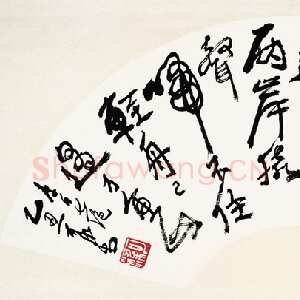 兩岸猿
聲
啼不住
輕舟已
過萬重山
李白詩
乙丑
Shufawang.CN